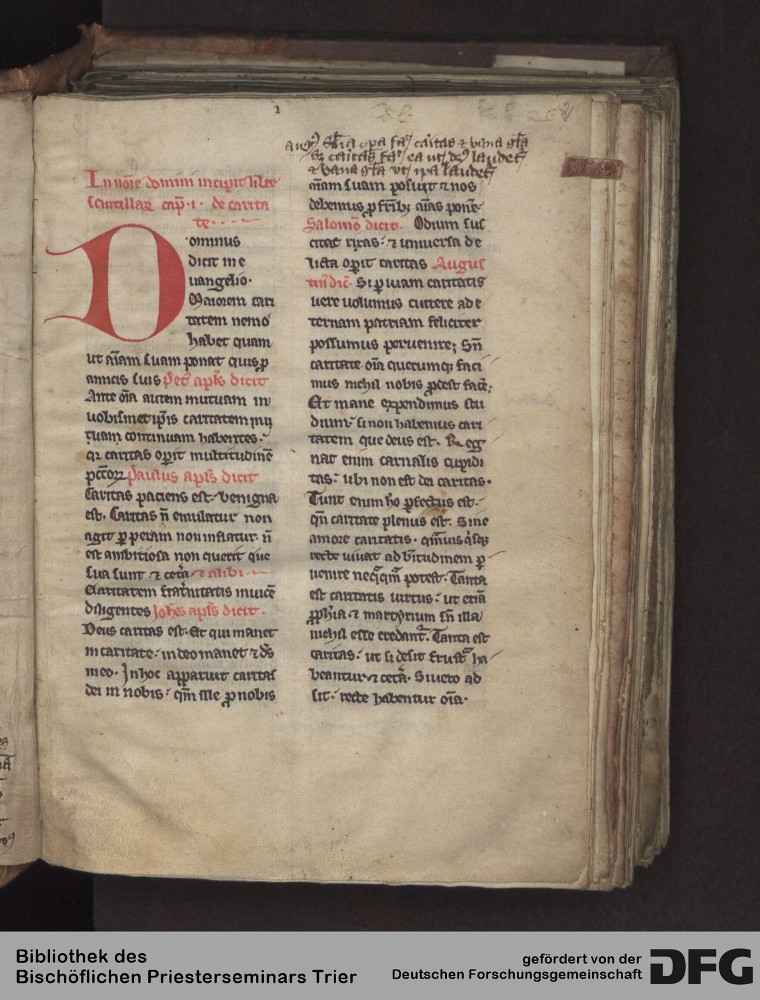 In noie domini incipit liber
scintillaꝝ cap̄·i· de carita
te·
Dominus
dicit in e
uangelio·
Maiorem cari
tatem nemo
habet quam
ut aīam suam ponat quis ꝓ
amicis suis Petꝰ apłs dicit
Ante oīa autem mutuam in
uobismet ipsis caritatem
tuam continuam habentes·
qꝛ caritas opit multitudinē
pccōꝝ Paulus apłs dicit
Caritas paciens est benigna
est· Caritas n̄ emulatur non
agit ꝑperam non inflatur· n̄
est ambitiosa non querit que
sua sunt ⁊ cetꝰa ⁊ alibi·
Caritatem frat̄nitatis inuicē
diligentes Iohēs apłs dicit·
Deus caritas est· Et qui manet
in caritate· in deo manet ⁊ dꝰs
in eo· In hoc apparuit caritas
dei in nobis· qm̄ ille ꝓ nobis
oꝑa caritas ⁊ uana gła
⁊ uana gła ut ipa laudet
aīam suam posuit ⁊ nos
debemus ꝓ frīb; aīas pone·
Salomō dicit· Odium sus
citat rixas· ⁊ uniuersa de
licta opit caritas Augus
tinꝰ dic̄· Si ꝑ uiam caritatis
uere uolumus currere ad e
ternam patriam feliciter
possumus peruenire; Sn̄
caritate oīa quecumq; faci
mus nichil nobis ꝓdest facē;
Et inane expendimus stu
dium· si non habemus cari
tatem que deus est· Reg
nat enim carnalis cupidi
tas· ubi non est dei caritas·
Tunc enim hō ꝑfectus est·
qn̄ caritate plenus est· Sine
amore caritatis· qmuis qͥsq;
recte uiuat ad bt̄itudinem ꝑ
uenire neq̄qm̄ potest· Tanta
est caritatis uirtus· ut etiā
ꝓph̄ia· ⁊ martyrium sn̄ illa
nichil esse credant̄· Tanta est
caritas· ut si desit frustꝰa ha
beantur ⁊ cetꝰa· Si uero ad
sit· recte habentur oīa·
Bibliothek des
Bischöflichen Priesterseminars Trier
gefördert von der
Deutschen Forschungsgemeinschaft
DFG